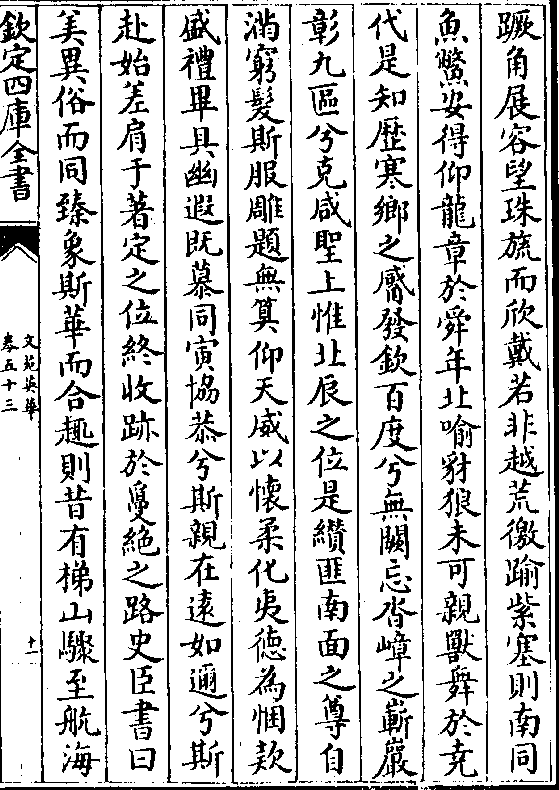 蹶角展容望珠旒而欣戴若非越荒徼踰紫塞則南同
魚鱉安得仰龍章於舜年北喻豺狼未可親獸舞於堯
代是知歷寒鄉之觱發欽百度兮無闕忘沓嶂之嶄巖
彰九區兮克咸聖上惟北辰之位是纘匪南面之尊自
滿窮髮斯服雕題無算仰天威以懷柔化夷德為悃款
盛禮畢具幽遐既慕同寅協恭兮斯親在遠如邇兮斯
赴始差肩于著定之位終收跡於敻絶之路史臣書曰
美異俗而同臻象斯華而合趣則昔有梯山驟至航海
欽定四庫全書
文苑英華
卷五十三
十一